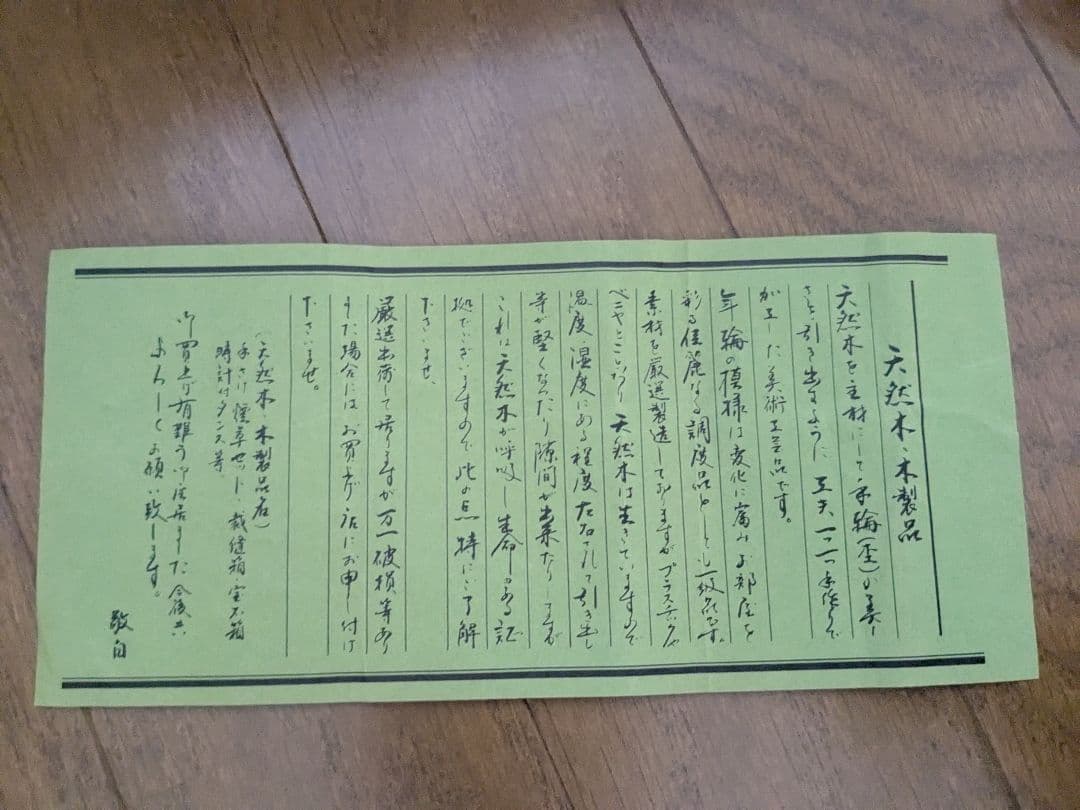 天然木・木製品
天然木を主材にして年輪(杢)が美し
さを引き出すように工夫一つ一つ手作りで
加工した美術工芸品です。
年輪の模様は変化に富みお部屋を
彩る佳麗なる調度品としても一級品です。
素材を厳選製造しておりますがプラスチックや
ベニヤとことなり天然木は生きていますので
温度、湿度にある程度左右されて引き出し
等が堅くなったり隙間が出来たりしますが
これは天然木が呼吸し生命のある証
拠でございますので此の点特にご了解
下さいませ、
厳選出荷して居りますが万一破損等あり
ました場合にはお買上げ店にお申し付け
下さいませ。
(天然木・木製品名)
手さげ煙草セット・裁縫箱・宝石箱
時計付タンス等
御買上げ有難う御座居ました今後共
よろしくお願い致します。
敬白